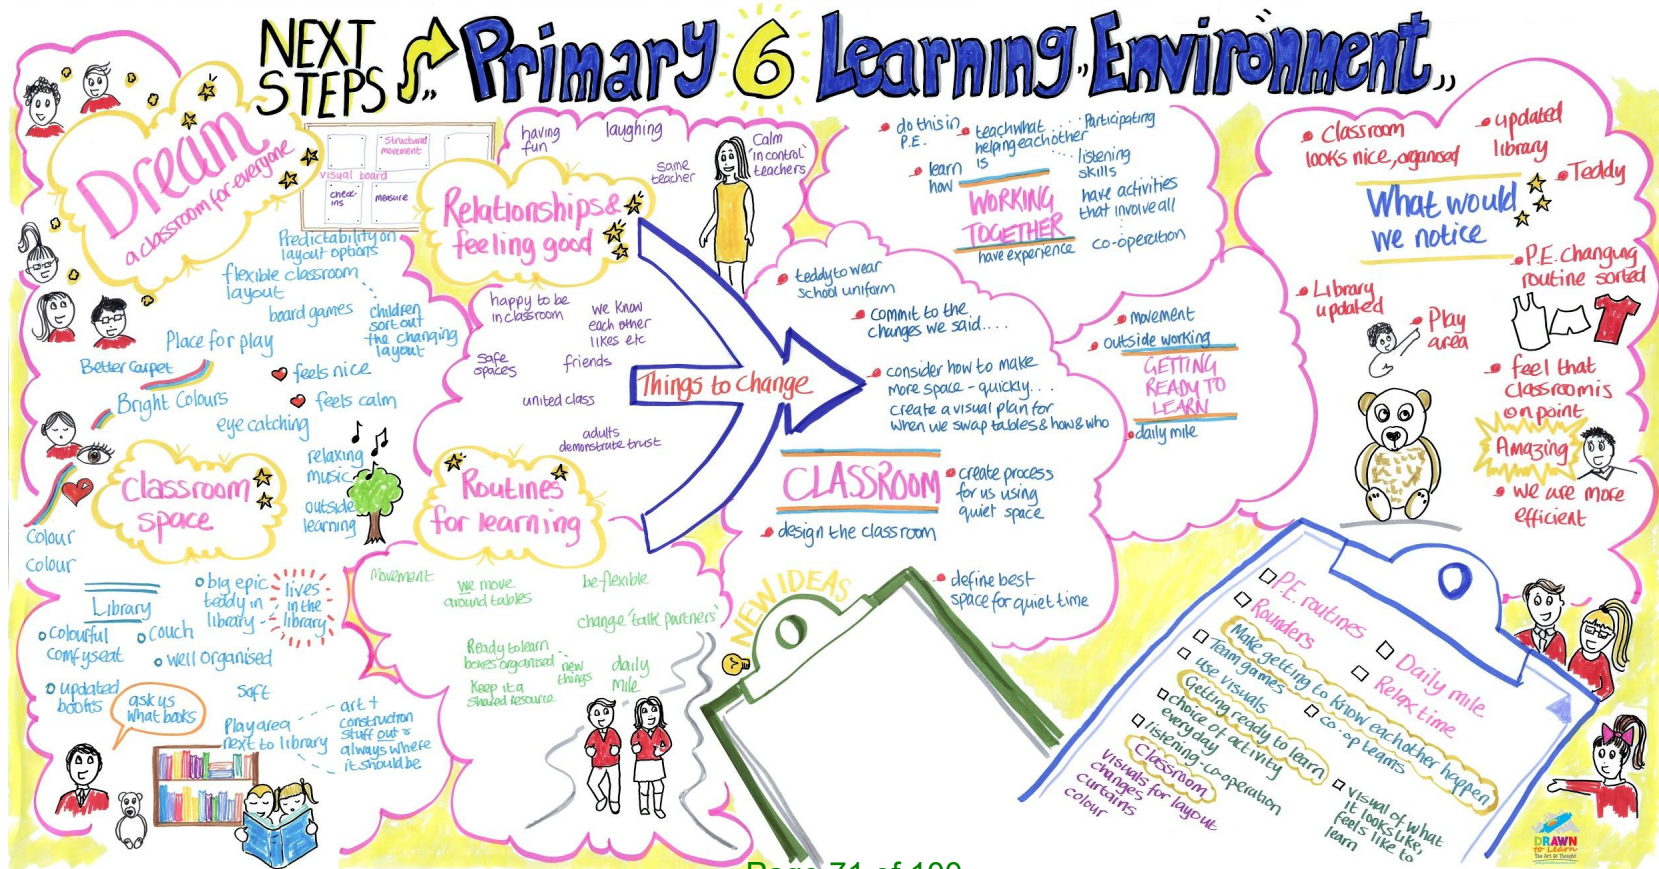 NEXT
STEPS
Primary 6 Learning Environment
Dream
a classroom for everyone
Structured
movement
visual board
check-
ins
measure
Predictability on
layout options
flexible classroom
layout
board games
children
sort out
the changing
layout
Place for play
Better carpet
feels nice
Bright Colours
feels calm
eye catching
relaxing
music
outside
learning
Classroom
space
Colour
colour
Library
big epic
teddy in
library
lives
in the
library
colourful
comfy seat
couch
well organised
updated
books
ask us
what books
Soft
Play area
next to library
art +
construction
stuff out &
always where
it should be
Relationships &
feeling good
having
fun
laughing
same
teacher
Calm
'in control'
teachers
happy to be
in classroom
we know
each other
likes etc
safe
spaces
friends
united class
adults
demonstrate trust
Routines
for learning
Movement
we move
around tables
be flexible
change 'talk partners'
Ready to learn
boxes organised
new
things
Keep it a
shared resource
daily
mile
Things to Change
do this in
P.E.
teach what
helping each other
is
Participating
listening
skills
learn
how
WORKING
TOGETHER
have activities
that involve all
have experience
co-operation
teddy to wear
school uniform
commit to the
changes we said....
consider how to make
more space - quickly...
create a visual plan for
when we swap tables & how & who
CLASSROOM
create process
for us using
quiet space
design the classroom
define best
space for quiet time
movement
outside working
GETTING
READY TO
LEARN
daily mile
Classroom
looks nice, organised
updated
library
Teddy
What would
we notice
P.E. Changing
routine sorted
Library
updated
Play
area
feel that
classroom is
on point
Amazing
we are more
efficient
NEW IDEAS
P.E. routines
Rounders
Daily mile
Relax time
Make getting to know each other happen
Team games
co-op teams
use visuals
Getting ready to learn
choice of activity
everyday
listening-co-operation
Classroom
visuals for layout
changes
curtains
colour
visual of what
it looks like,
feels like to
learn
DRAWN
to Learn
The Art of Thought
Page 71 of 100